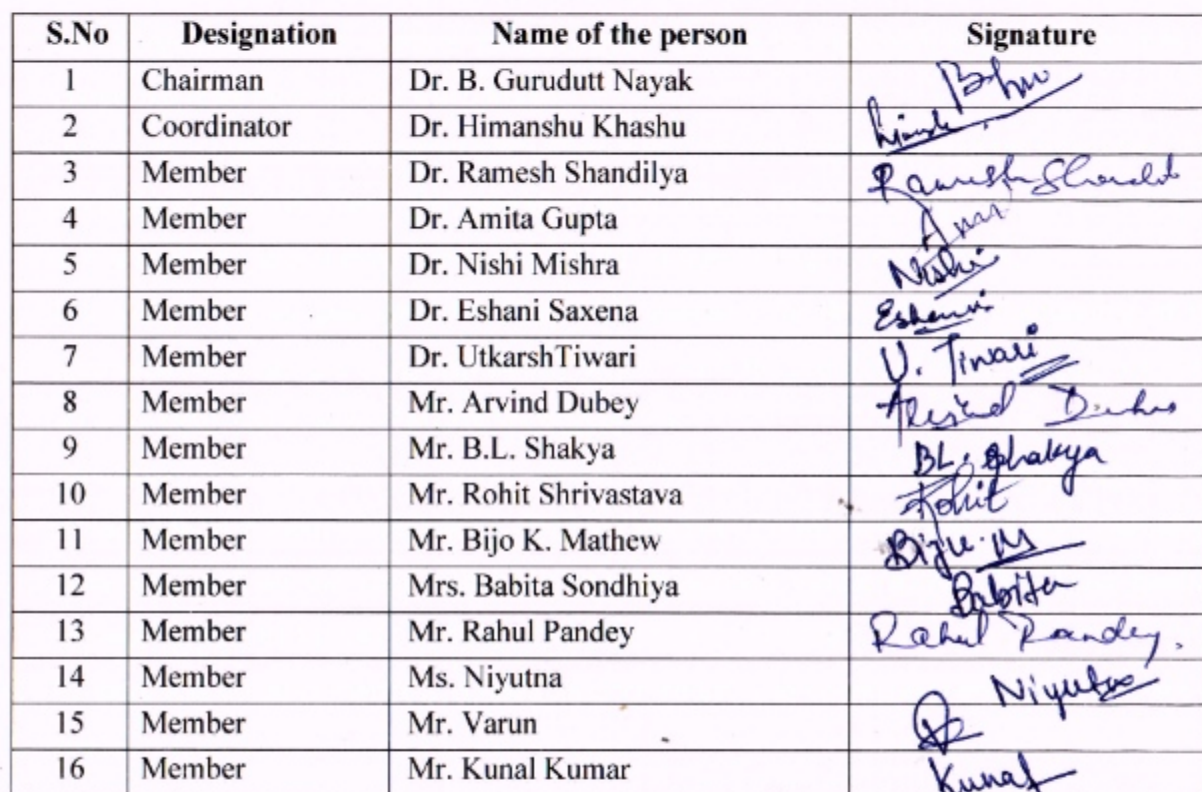 S.No Designation Name of the person Signature
1 Chairman Dr. B. Gurudutt Nayak
2 Coordinator Dr. Himanshu Khashu
3 Member Dr. Ramesh Shandilya Ramesh
4 Member Dr. Amita Gupta
5 Member Dr. Nishi Mishra Nishi
6 Member Dr. Eshani Saxena Eshani
7 Member Dr. UtkarshTiwari U. Tiwari
8 Member Mr. Arvind Dubey
9 Member Mr. B.L. Shakya BL. Shakya
10 Member Mr. Rohit Shrivastava Rohit
11 Member Mr. Bijo K. Mathew
12 Member Mrs. Babita Sondhiya Babita
13 Member Mr. Rahul Pandey Rahul Pandey.
14 Member Ms. Niyutna
15 Member Mr. Varun
16 Member Mr. Kunal Kumar Kunal